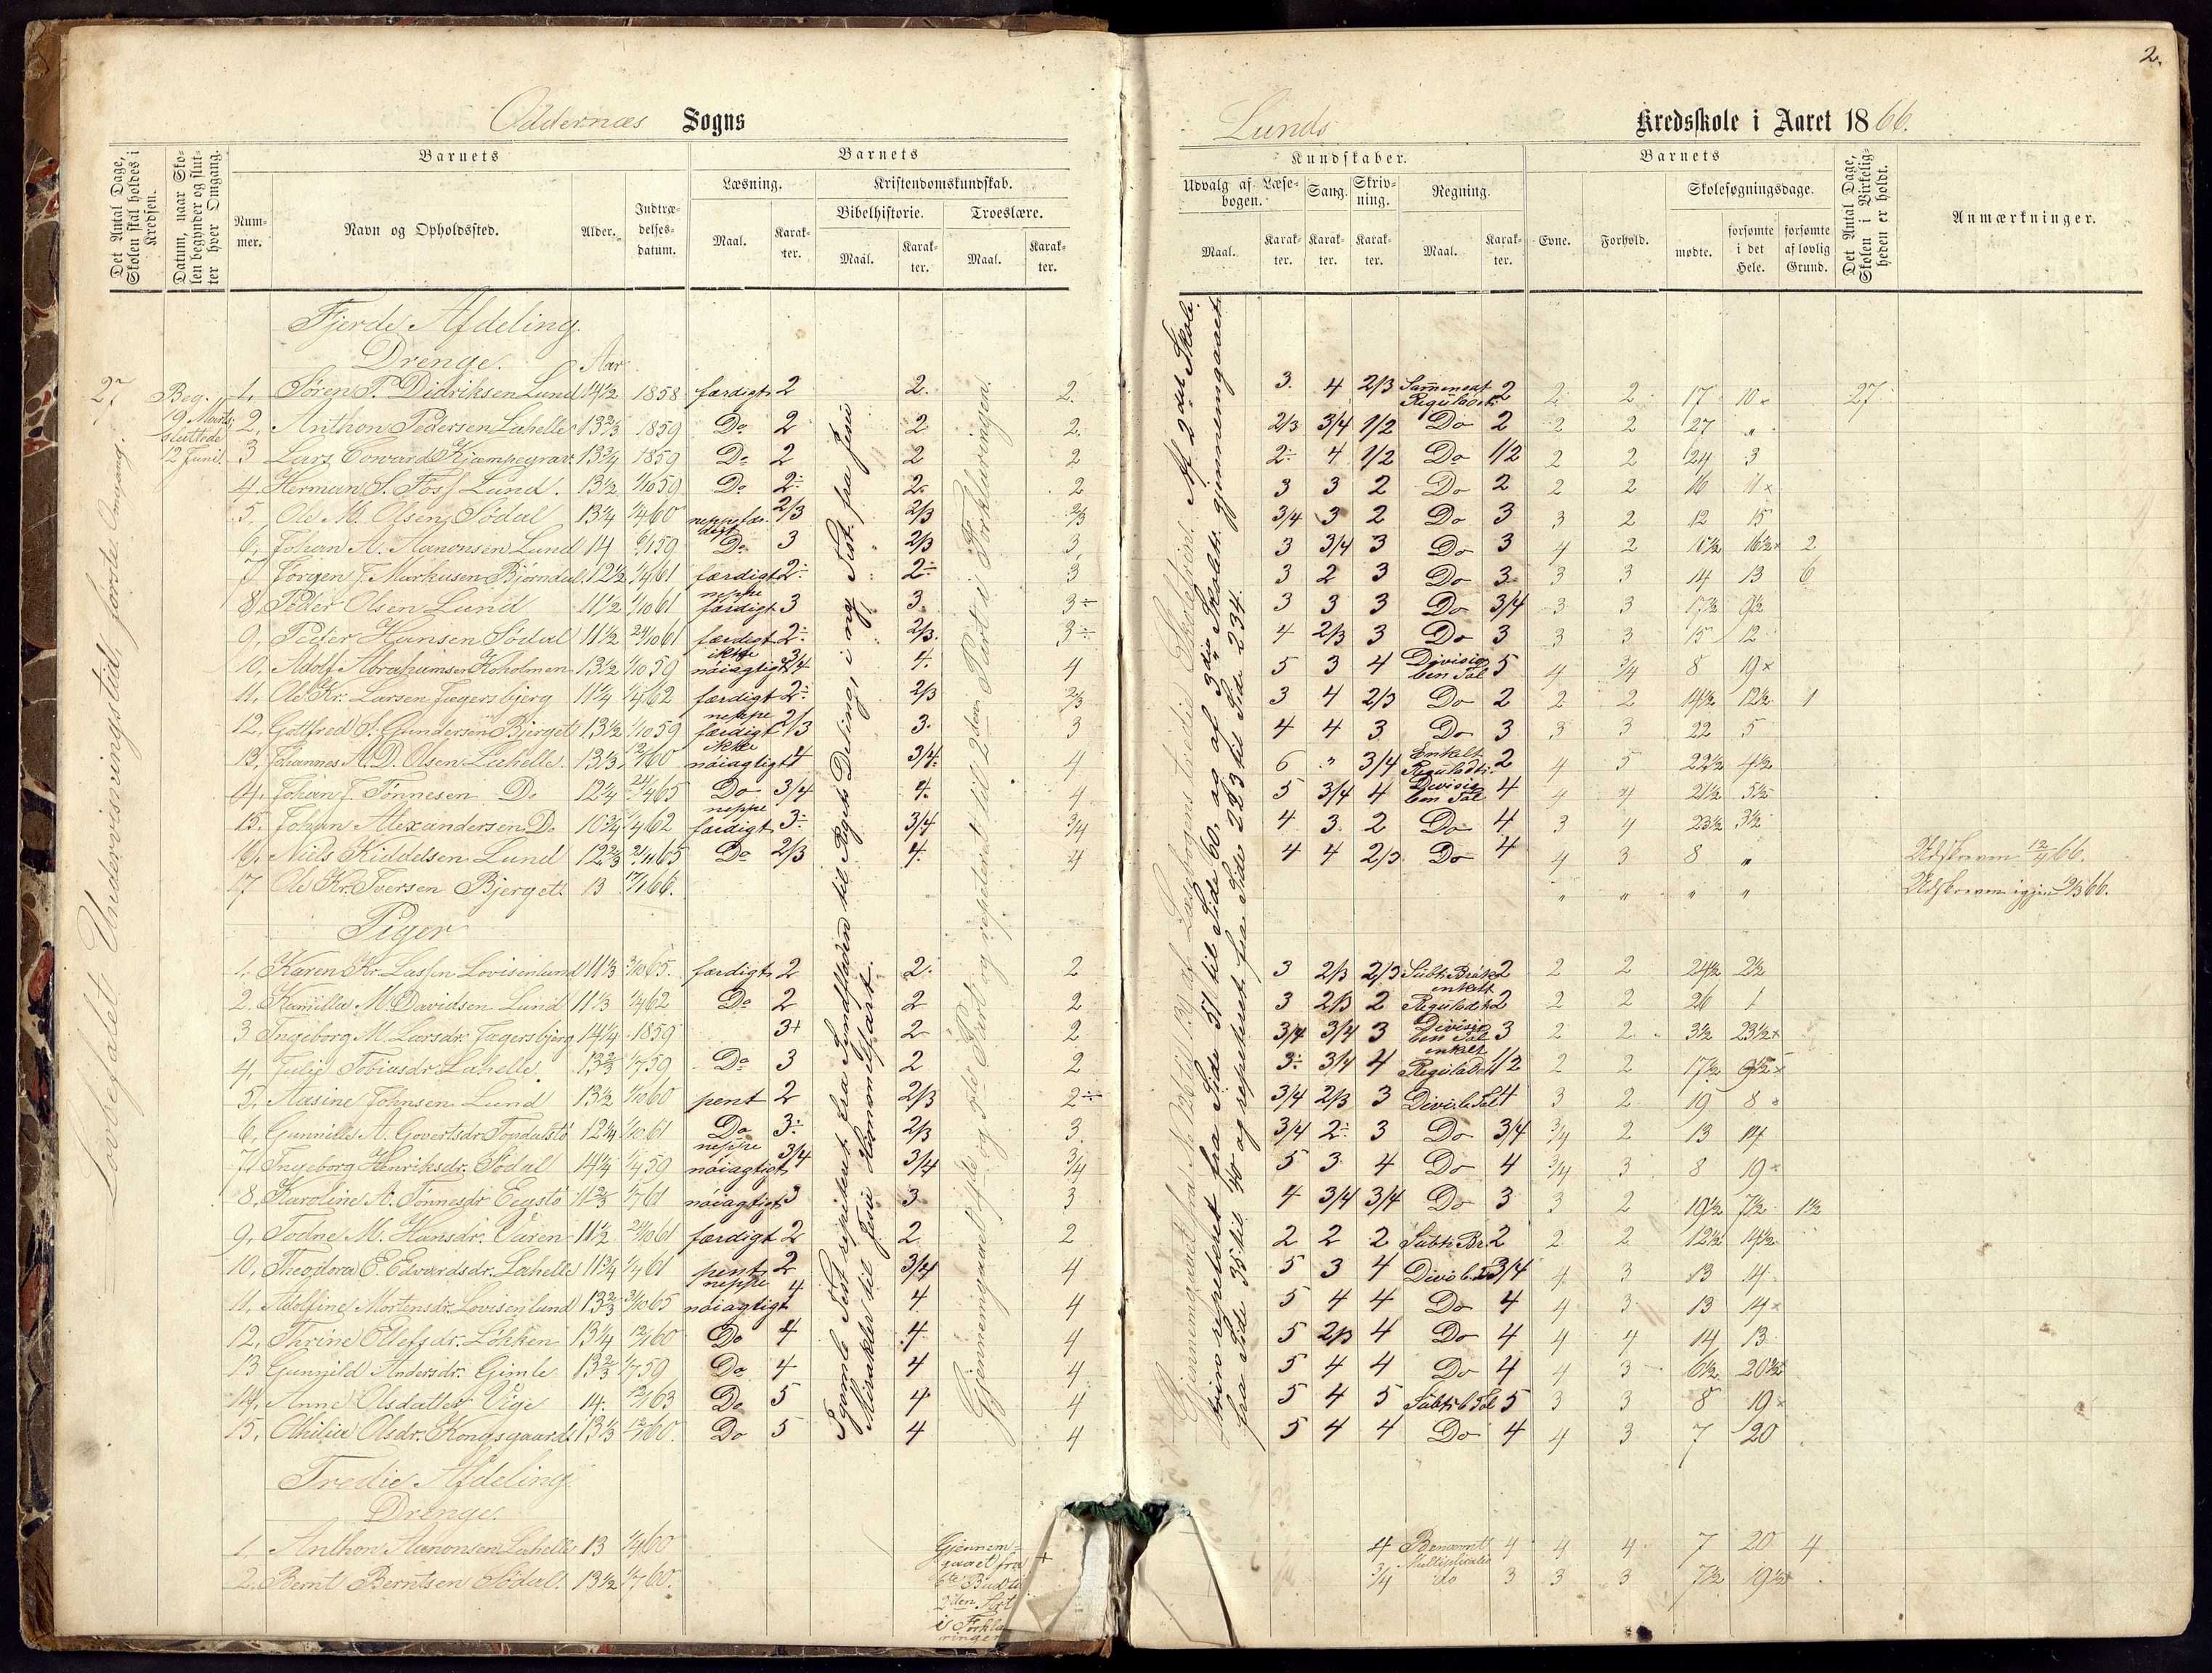 2.
Oddernæs Sogns
Lunds Kredsskole i Aaret 1866.
Det Antal Dage, Skolen skal holdes i Kredsen.
Datum, naar Skolen begynder og slutter hver Omgang.
Barnets
Nummer.
Navn og Opholdssted.
Alder.
Indtrædelsesdatum.
Barnets
Læsning.
Maal.
Karakter.
Kristendomskundskab.
Bibelhistorie.
Maal.
Karakter.
Troeslære.
Maal.
Karakter.
Kundskaber.
Udvalg af Læsebogen.
Maal.
Karakter.
Sang.
Karakter.
Skrivning.
Karakter.
Regning.
Maal.
Karakter.
Barnets
Evne.
Forhold.
Skolesøgningsdage.
mødte.
forsømte i det Hele.
forsømte af lovlig Grund.
Det Antal Dage, Skolen i Virkeligheden er holdt.
Anmærkninger.
Fjerde Afdeling.
Drenge. Aar
27 Beg. 19 Marts sluttede 12 Juni.
Lovbefalet Undervisningstid, første Omgang.
1. Søren T. Didriksen Lund 14½ 1858 færdigt 2 2. 2. 3. 4 2/3 Sammensat Reguladetri 2 2 2 17 10 27
2. Anthon Pedersen Lahelle 13⅔ 1859 Do 2 2 2. 2/3 3/4 1/2 Do 2 2 2 27 „
3 Lars Kjæmpegrav. 13¾ 1859 Do 2 2 2 2÷ 4 1/2 Do 1/2 2 2 24 3
4. Herman S. Foss Lund. 13½ 1/10 59 Do 2÷ 2. 2 3 3 2 Do 2 2 2 16 11×
5. Ole M. Olsen Södal 13¼ 1/4 60 neppe færdigt 2/3 2/3 2/3 3/4 3 2 Do 3 3 2 12 15
6. Johan A. Aanonsen Lund 14 59 Do 3 2/3 3 3 3/4 3 Do 3 4 2 10½ 16½× 2
7 Jörgen J. Markusen Bjørndal 12½ 1/4 61 færdigt 2÷ 2÷ 3 3 2 3 Do 3 3 3 14 13 6
8. Peder Olsen Lund 11½ 1/10 61 neppe færdigt 3 3. 3÷ 3 3 3 Do 3/4 3 3 17½ 9½
9. Peter Hansen Södal 11½ 24/10 61 færdigt 2÷ 2/3. 3÷ 4 2/3 3 Do 3 3 3 15 12
10. Adolf Abrahamsen Koholmen 13½ 1/10 59 ikke nöiagtigt 3/4 4. 4 5 3 4 Division ben Tal 5 4 3/4 8 19×
11. Ole Kr. Larsen Fagersbjerg 11¼ 62 færdigt 2÷ 2/3 2/3 3 4 2/3 Do 2 2 2 14½ 12½ 1
12. Gotfred S. Gundersen Bjerget 13½ 1/10 59 neppe færdigt 2/3 3. 3 4 4 3 Do 3 3 3 22 5
13. Johannes A.D. Olsen Lahelle 13⅓ 60 ikke nöiagtigt 4 3/4. 4 6 „ 3/4 Enkelt Reguladetri. 2 4 5 22½ 4½
14. Johan J. Tönnesen Do 12¼ 24/4 65 Do 3/4 4. 4 5 3/4 4 Division ben Tal 4 4 4 21½ 5½
15. Johan Alexandersen Do 10¾ 1/4 62 neppe færdigt 3÷ 3/4 3/4 4 3 2 Do 4 3 4 23½ 3½
16. Niels Kiddelsen Lund 12⅔ 21/11 65 Do 2/3 4. 4 4 4 2/3 Do 4 4 3 8 „ Udskreven 12/4 66.
17 Ole Kr. Iversen Bjerget 13 17/1 66. „ „ „ „ Udskreven igjen 19/3 66.
Piger
1. Karen Kr. Lassen Lovisenlund 11⅓ 3/10 65. færdigt 2 2. 2 3 2/3 2/3 Subtr. Bråk 2 2 2 24½ 2½
2. Kamilla M. Davidsen Lund 11⅓ 1/4 62 Do 2 2 2 3 2/3 2 enkelt Reguladetri 2 2 2 26 1
3 Ingeborg M. Larsdr. Fagersbjerg 14¼ 1859 3+ 2 2 3/4 3/4 3 Division ben Tal 3 2 2 3½ 23½×
4. Julie Tobiasdr. Lahelle. 13⅔ 1/7 59 Do 3 2 2 3÷ 3/4 4 enkelt Reguladetri 1/2 2 2 17½ 9½×
5. Aasine Johnsen Lund 13½ 1/10 60 pent 2 2/3 2÷ 3/4 2/3 3 Divi. b. Tal 4 3 2 19 8
6. Gunnille A. Govertsdr. Topdalstö 12¼ 1/10 61 Do 3÷ 2/3 3. 3/4 2÷ 3 Do 3/4 3/4 2 13 14
7. Ingeborg Henriksdr. Södal 14¼ 1/4 59 neppe nöiagtigt 3/4 3/4 3/4 5 3 4 Do 4 3/4 3 8 19×
8. Karoline A. Tönnesdr. Eegstö 11⅔ 61 nöiagtigt 3 3 3 4 3/4 3/4 Do 3 3 2 19½ 7½ 1½
9. Todne M. Hansdr. Våren 11½ 24/10 61 færdigt 2 2 2 2 2 2 Subtr. Br. 2 2 2 12½ 14½
10. Theodora E. Edvardsdr. Lahelle 11¾ 1/4 61 pent 2 3/4 4 5 3 4 Divi b. T 3/4 4 3 13 14
11. Adolfine Mortensdr. Lovisenlund 13⅔ 3/10 65 neppe nöiagtigt 4 4 4 5 4 4 Do 4 4 3 13 14×
12. Thrine Ellefsdr. Lökken 13¼ 60 Do 4 4 4 5 2/3 4 Do 4 4 4 14 13
13 Gunnild Andersdr. Gimle 13⅔ 1/7 59 Do 4 4 4 5 4 4 Do 4 4 3 6½ 20½×
14. Anne Olsdatter Vige 14. 63 Do 5 4 4 5 4 5 Subtr. b. Tal 5 3 3 8 19×
15. Othilia Olsdr. Kongsgaard 13⅓ 60. Do 5 4 4 5 4 4 Do 4 4 3 7 20
I gamle Test. repeteret fra Syndfloden til Rigets Deling, i nye Test. fra Jesu
Mirakler til Jesu Himmelfart.
Gjennemgaaet fjde og 5te Part og repeteret til 2den Part i Forklaringen.
Gjennemgaaet fra af Læsebogens tredie Skoletrin. Af 2det Skole-
trin repeteret fra Side 51 til Side 60, og af 3die Skoletr. gjennemgaaet
fra Side 35 til 40 og repeteret fra Side 223 til Side 234.
Tredie Afdeling
Drenge.
1. Anthon Aanonsen Lahelle 13 1/4 60 4 Benævnt Multiplication 4 4 4 7 20 4
2. Bernt Berntsen Södal. 13½ 1/7 60. 3/4 do 3 3 3 7½ 19½
Gjennem-
gaaet fra
6te Bud til
2den Art
i Forkla-
ringen